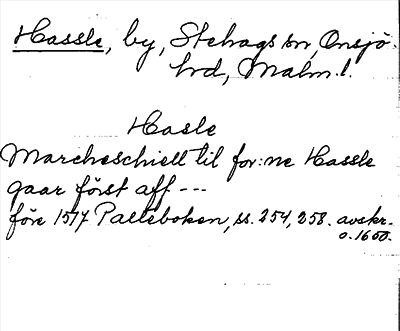 Hassle, by, Stehags sn, Onsjö
hrd, Malm. l.
Hasle
Marcheschiell til for:ne Hassle
gaar först aff ---
före 1517 Palteboken, ss. 254, 258. avskr.
o. 1600.